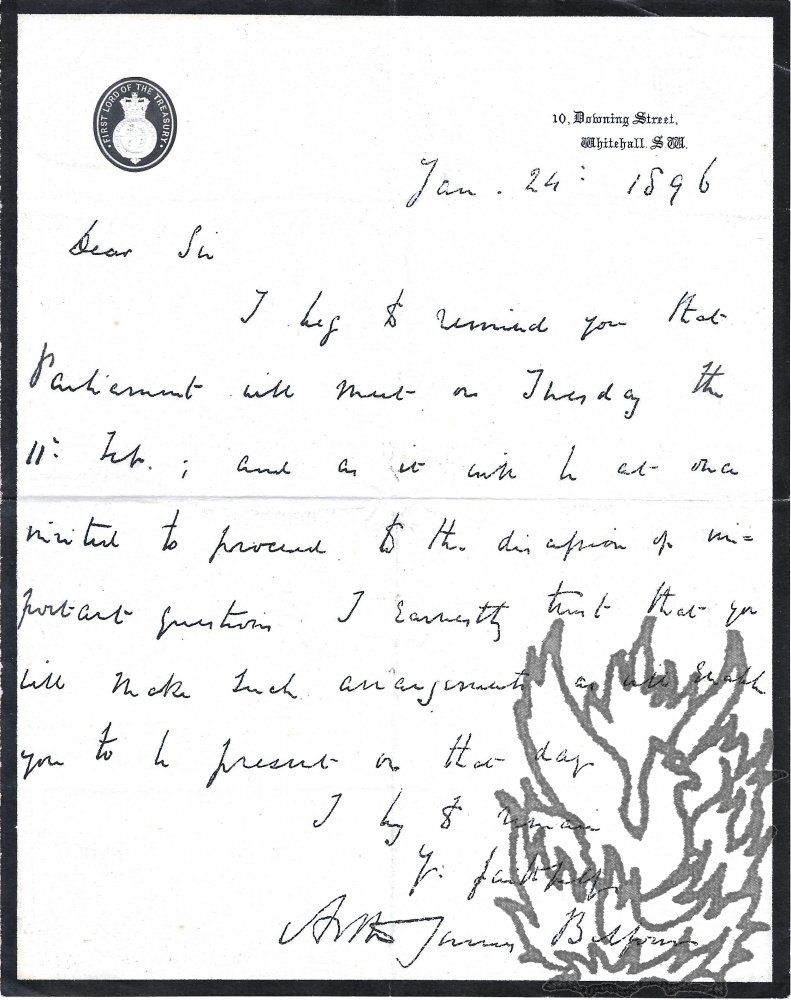 FIRST LORD OF THE TREASURY.
10, Downing Street,
Whitehall. S.W.
Jan. 24: 1896
Dear Sir
I beg to remind you that
Parliament will meet on Tuesday the
11: Feb. ; and as it will be at once
invited to proceed to the discussion of im=
portant questions I earnestly trust that you
will make such arrangements as will enable
you to be present on that day
I beg to remain
Yr. faithfully
Arthur James Balfour